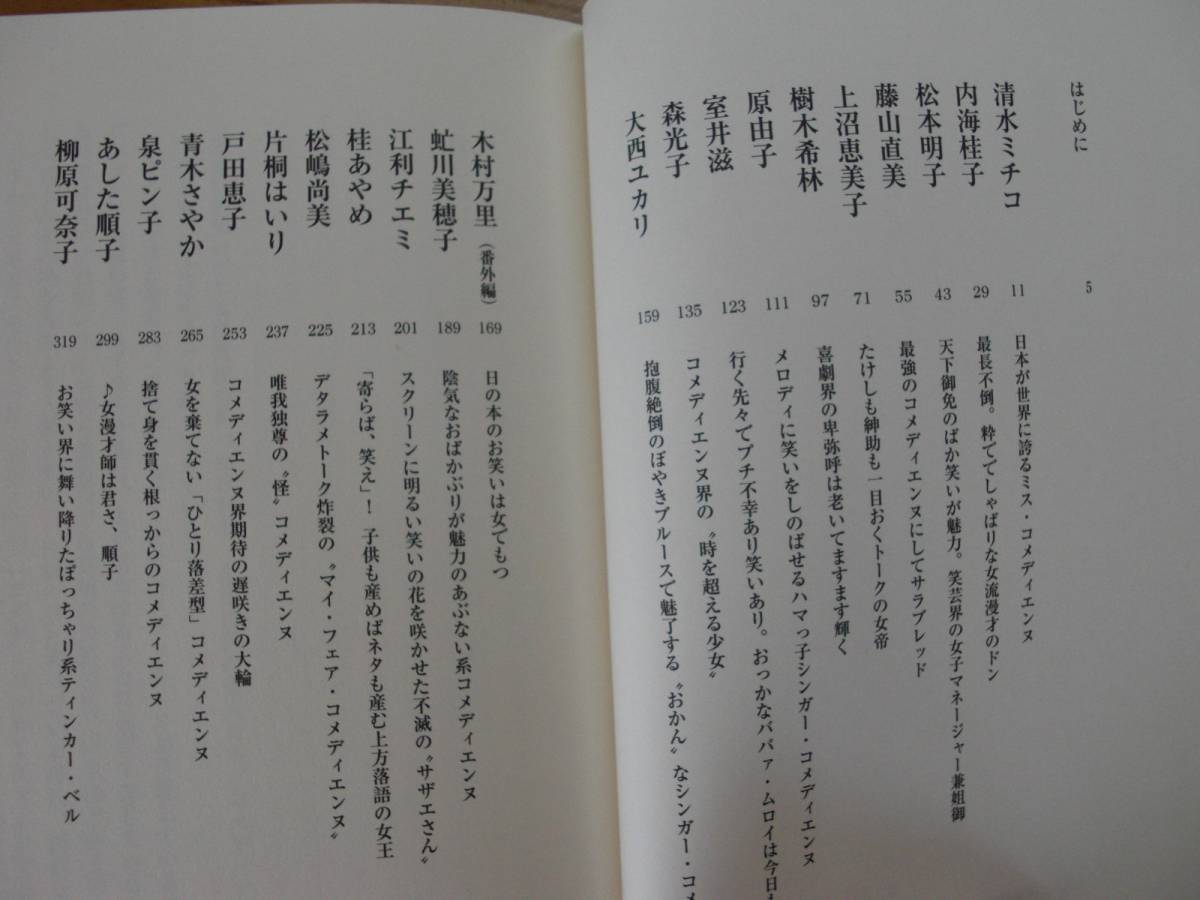 はじめに 5
清水ミチコ 11 日本が世界に誇るミス・コメディエンヌ
内海桂子 29 最長不倒。粋ででしゃばりな女流漫才のドン
松本明子 43 天下御免のばか笑いが魅力。笑芸界の女子マネージャー兼姐御
藤山直美 55 最強のコメディエンヌにしてサラブレッド
上沼恵美子 71 たけしも紳助も一目おくトークの女帝
樹木希林 97 喜劇界の卑弥呼は老いてますます輝く
原由子 111 メロディに笑いをしのばせるハマっ子シンガー・コメディエンヌ
室井滋 123 行く先々でプチ不幸あり笑いあり。おっかなババァ・ムロイは今日
森光子 135 コメディエンヌ界の〝時を超える少女〟
大西ユカリ 159 抱腹絶倒のぼやきブルースで魅了する〝おかん〟なシンガー・コメ
木村万里（番外編） 169 日の本のお笑いは女でもつ
虻川美穂子 189 陰気なおばかぶりが魅力のあぶない系コメディエンヌ
江利チエミ 201 スクリーンに明るい笑いの花を咲かせた不滅の〝サザエさん〟
桂あやめ 213 「寄らば、笑え」！ 子供も産めばネタも産む上方落語の女王
松嶋尚美 225 デタラメトーク炸裂の〝マイ・フェア・コメディエンヌ〟
片桐はいり 237 唯我独尊の〝怪〟コメディエンヌ
戸田恵子 253 コメディエンヌ界期待の遅咲きの大輪
青木さやか 265 女を棄てない「ひとり落差型」コメディエンヌ
泉ピン子 283 捨て身を貫く根っからのコメディエンヌ
あした順子 299 ♪女漫才師は君さ、順子
柳原可奈子 319 お笑い界に舞い降りたぽっちゃり系ティンカー・ベル